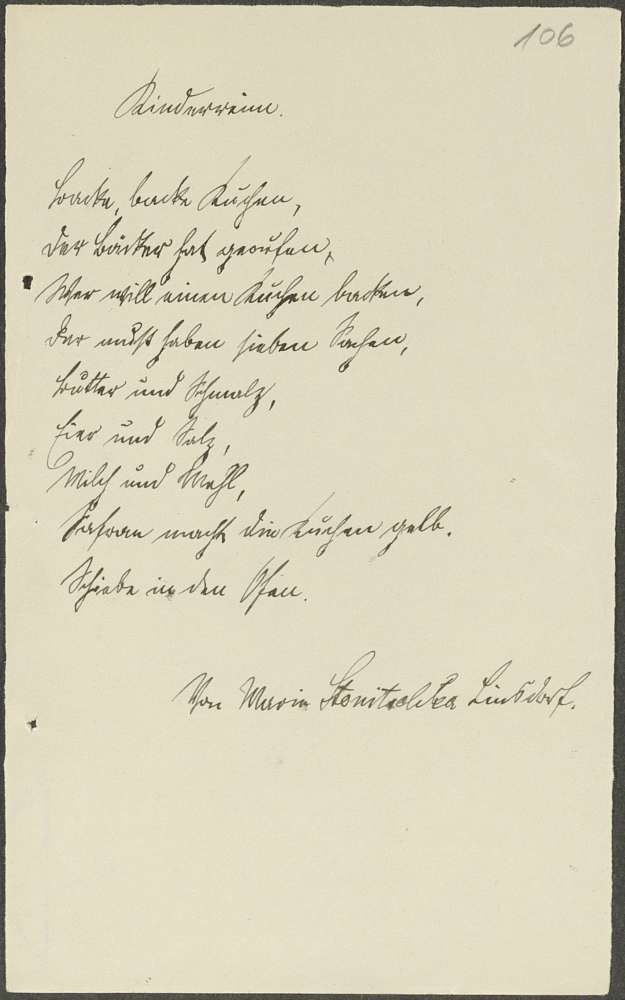 106
Kinderreim.
Backe, backe Kuchen,
der Bäcker hat gerufen,
Wer will einen Kuchen backen,
der muß haben sieben Sachen,
Butter und Schmalz,
Eier und Salz,
Milch und Mehl,
Safran macht die Kuchen gelb.
Schiebe in den Ofen.
Von Marie